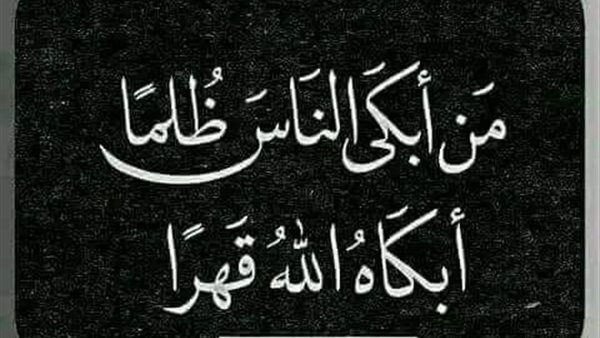 مَن أبكَى النَاسَ ظُلمًا
أبكَاهُ اللهُ قَهرًا